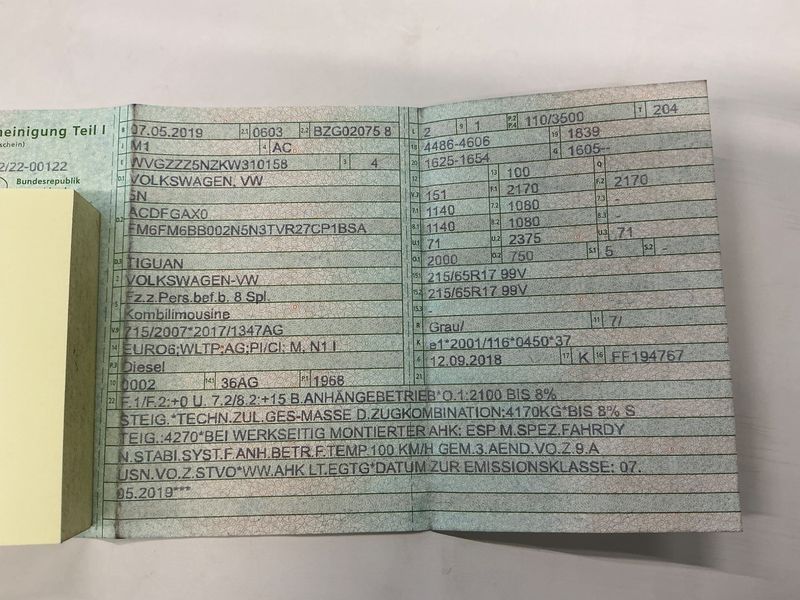 neinigung Teil I
schein)
2/22-00122
Bundesrepublik
B 07.05.2019 2.1 0603 2.2 BZG02075 8
J M1 4 AC
E WVGZZZ5NZKW310158 3 4
D.1 VOLKSWAGEN, VW
5N
D.2 ACDFGAX0
FM6FM6BB002N5N3TVR27CP1BSA
D.3 TIGUAN
2 VOLKSWAGEN-VW
5 Fz.z.Pers.bef.b. 8 Spl.
Kombilimousine
V.9 715/2007*2017/1347AG
14 EURO6;WLTP;AG;PI/CI; M, N1 I
P.3 Diesel
10 0002 14.1 36AG P.1 1968
L 2 9 1 P.2 P.4 110/3500 T 204
18 4486-4606 19 1839
20 1625-1654 G 1605--
12 - 13 100 Q -
V.7 151 F.1 2170 F.2 2170
7.1 1140 7.2 1080 7.3 -
8.1 1140 8.2 1080 8.3 -
U.1 71 U.2 2375 U.3 71
O.1 2000 O.2 750 S.1 5 S.2 -
15.1 215/65R17 99V
15.2 215/65R17 99V
15.3 -
R Grau/ 11 7/
K e1*2001/116*0450*37
6 12.09.2018 17 K 16 FF194767
21
22 F.1/F.2:+0 U. 7.2/8.2:+15 B.ANHÄNGEBETRIEB*O.1:2100 BIS 8%
STEIG.*TECHN.ZUL.GES-MASSE D.ZUGKOMBINATION:4170KG*BIS 8% S
TEIG.:4270*BEI WERKSEITIG MONTIERTER AHK: ESP M.SPEZ.FAHRDY
N.STABI.SYST.F.ANH.BETR.F.TEMP.100 KM/H GEM.3.AEND.VO.Z.9.A
USN.VO.Z.STVO*WW.AHK LT.EGTG*DATUM ZUR EMISSIONSKLASSE: 07.
05.2019***